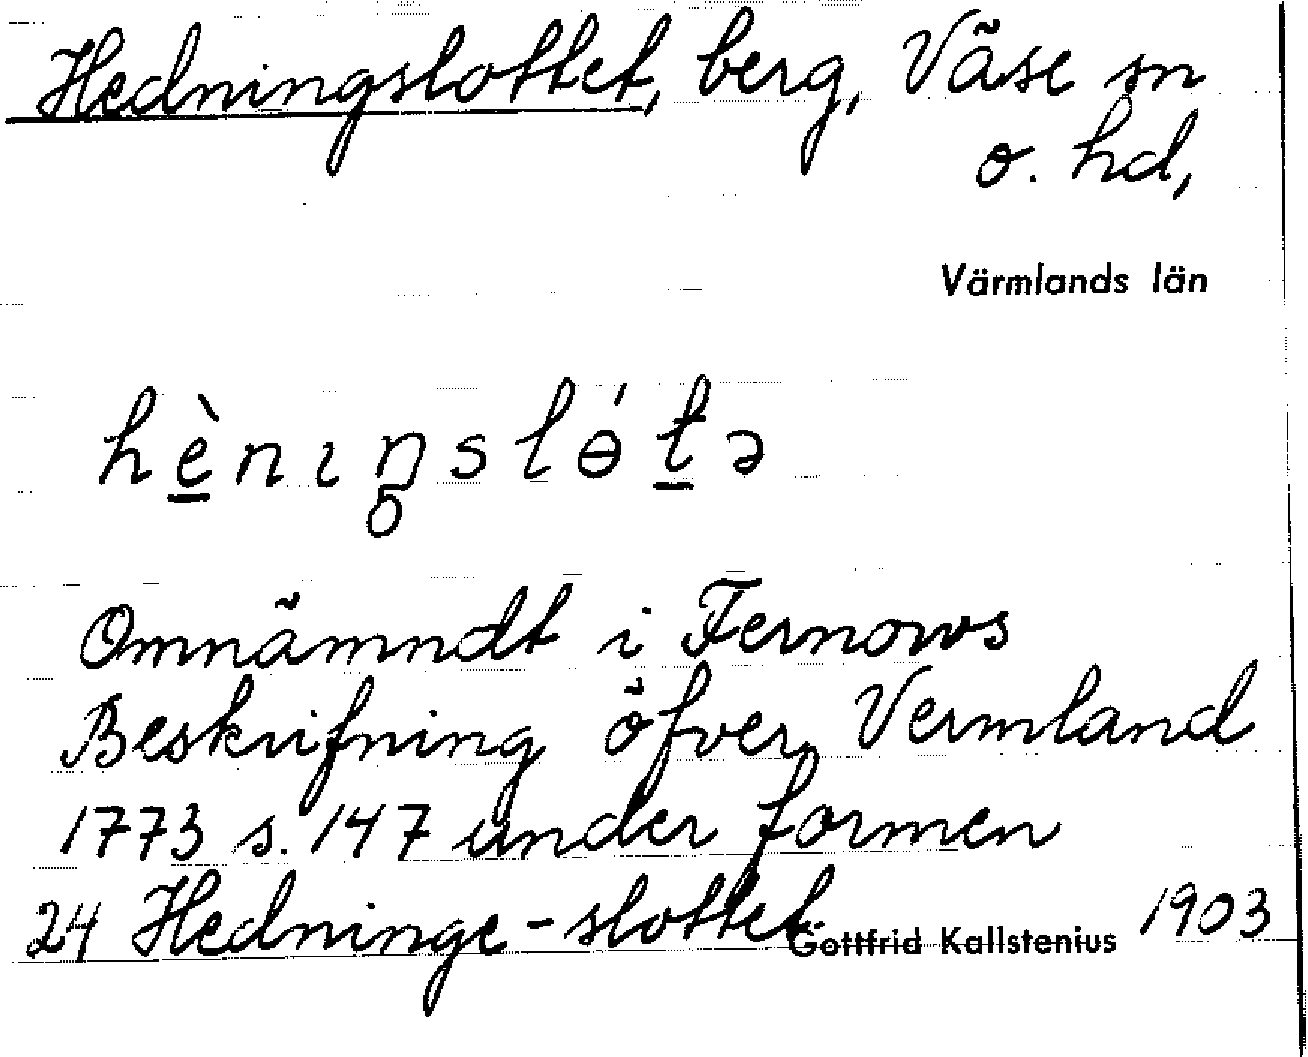 Hedningslottet, berg, Väse sn
o. hd,
Värmlands län
hènıŋslɵ́tə
Omnämndt i Fernows
Beskrifning öfver Vermland
1773 s. 147 under formen
24 Hedninge-slottet Gottfrid Kallstenius 1903